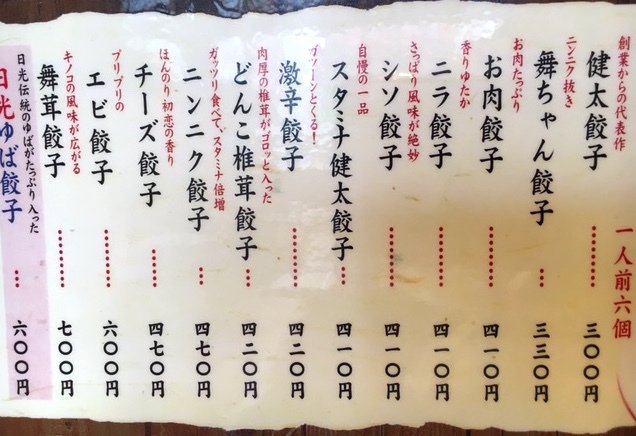 創業からの代表作
健太餃子………三〇〇円
一人前六個
ニンニク抜き
舞ちゃん餃子…三三〇円
お肉たっぷり
お肉餃子………四一〇円
香りゆたか
ニラ餃子………四一〇円
さっぱり風味が絶妙
シソ餃子………四一〇円
自慢の一品
スタミナ健太餃子…四一〇円
ガツーンとくる!
激辛餃子………四二〇円
肉厚の椎茸がゴロッと入った
どんこ椎茸餃子…四二〇円
ガッツリ食べて、スタミナ倍増
ニンニク餃子…四七〇円
ほんのり初恋の香り
チーズ餃子……四七〇円
プリプリの
エビ餃子………六〇〇円
キノコの風味が広がる
舞茸餃子………七〇〇円
日光伝統のゆばがたっぷり入った
日光ゆば餃子…六〇〇円